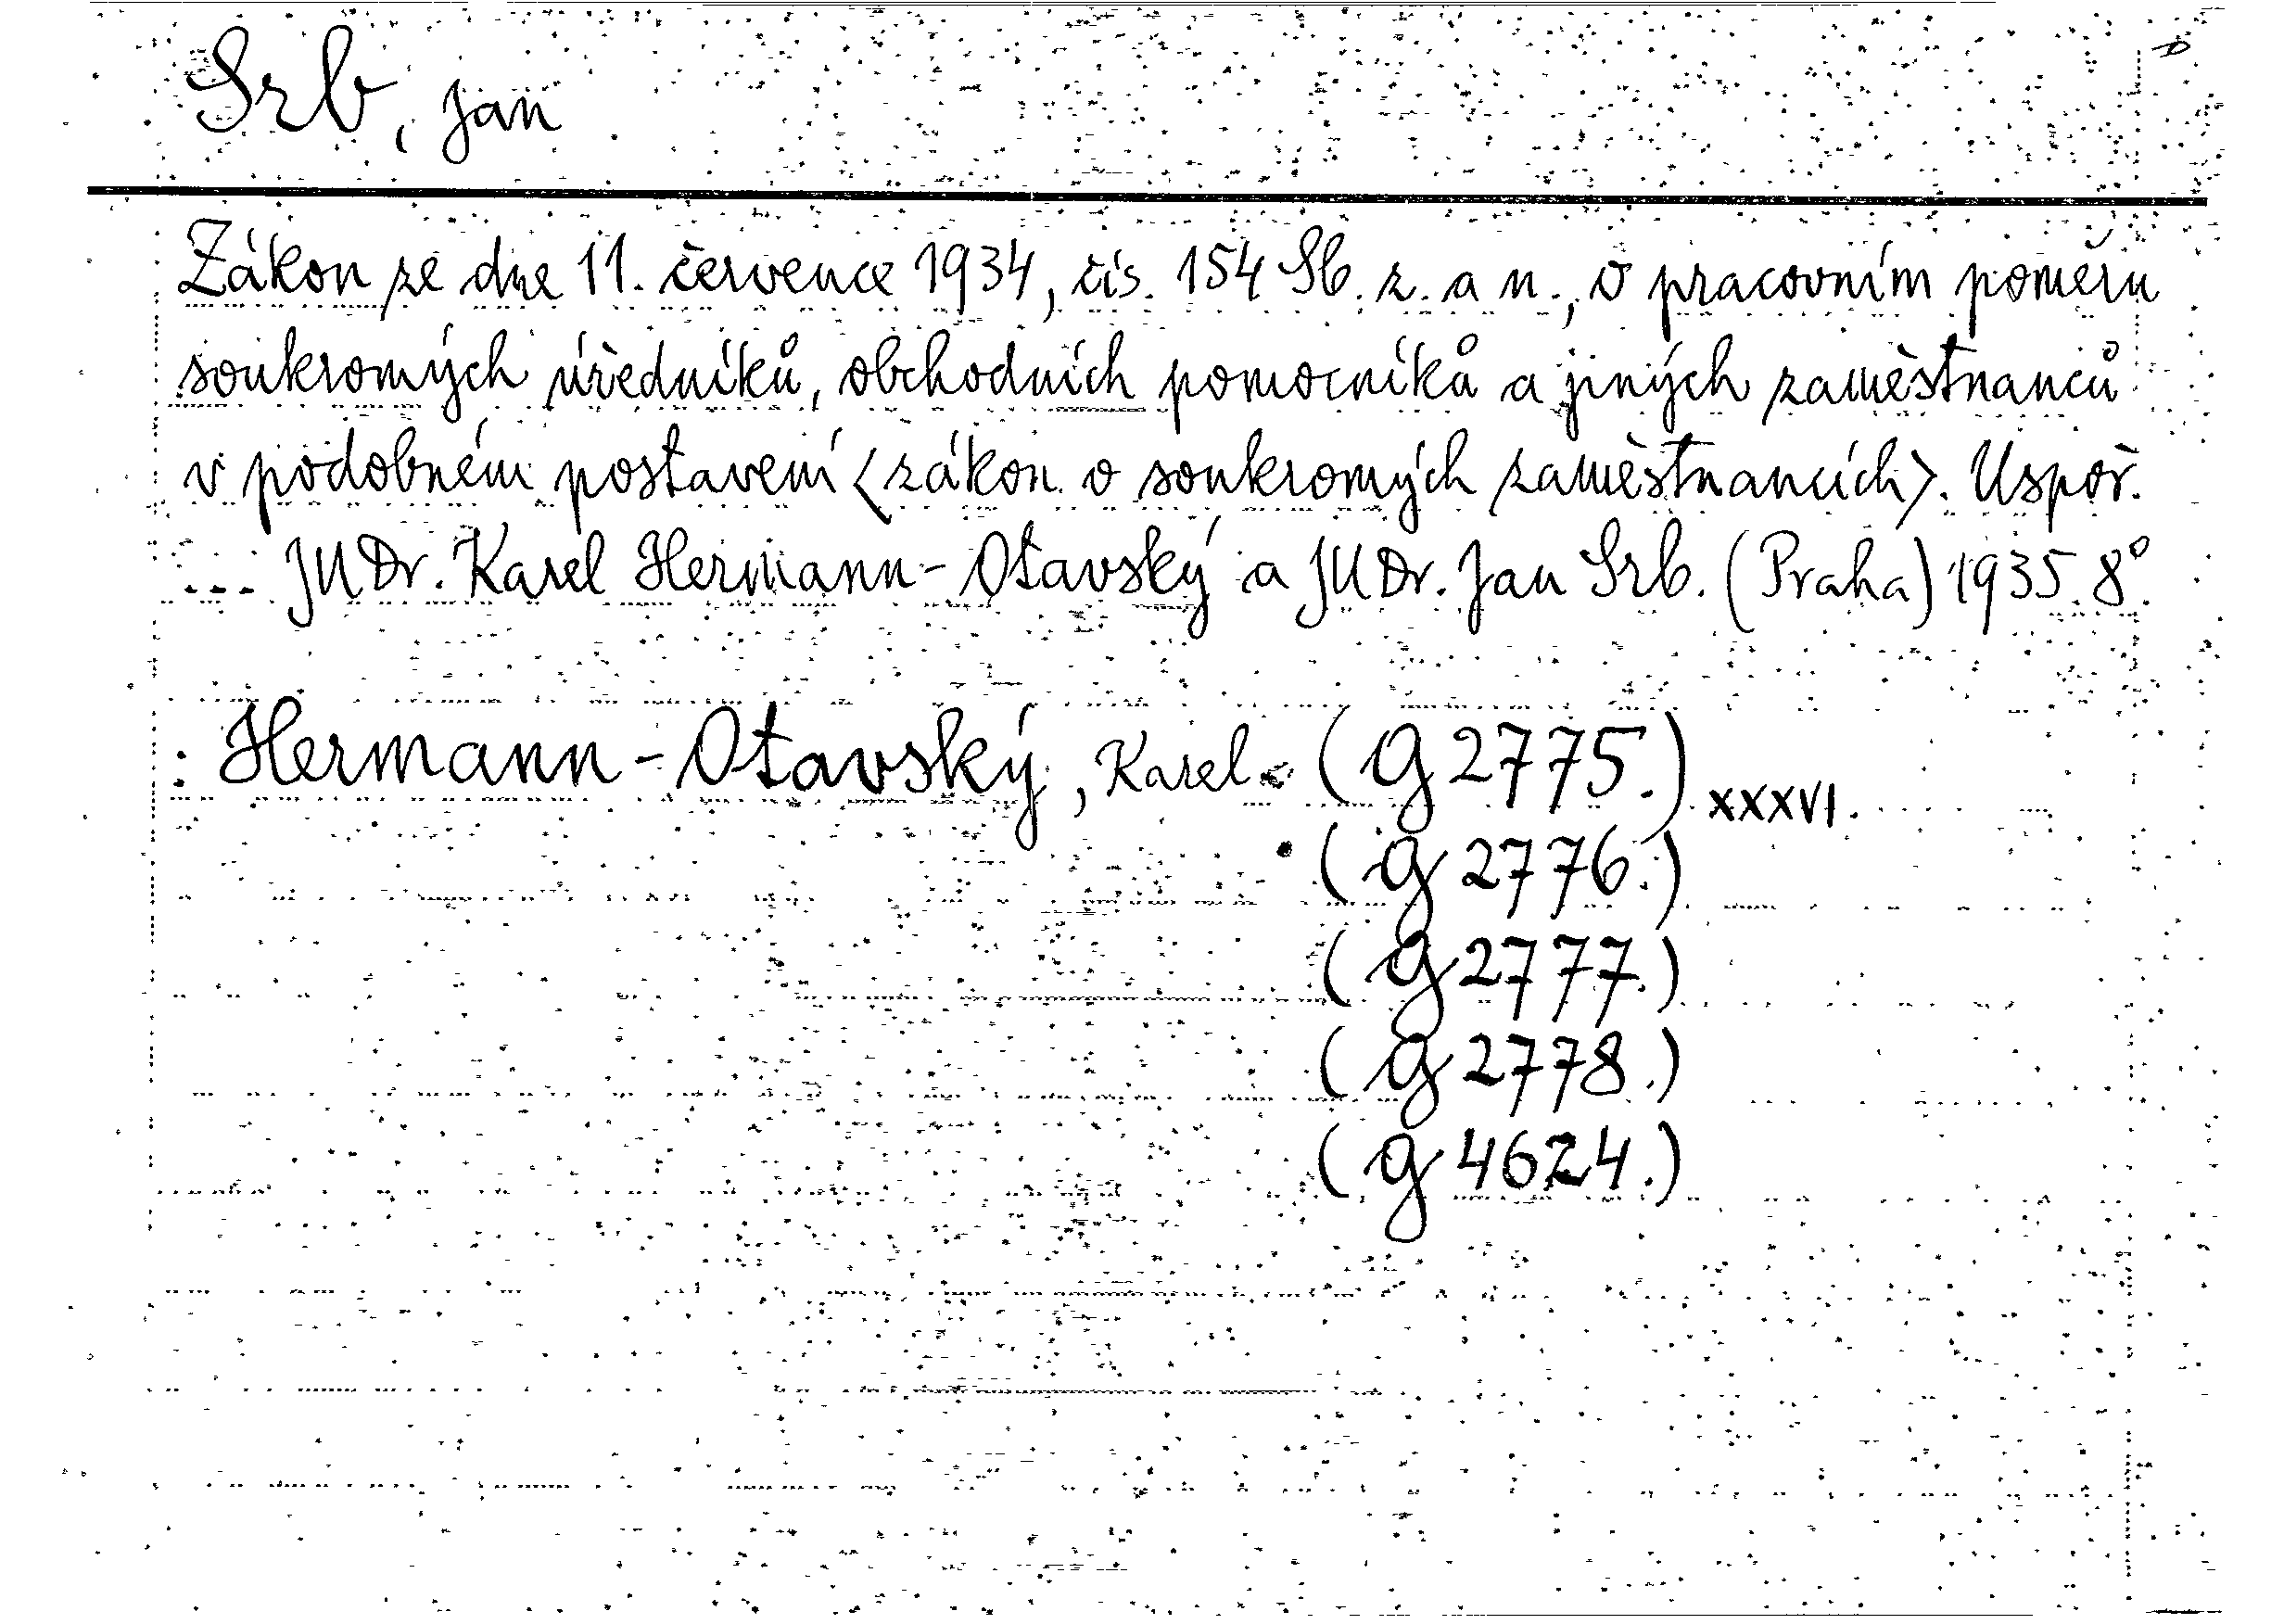 Srb, Jan
Zákon ze dne 11. července 1934, čís. 154 Sb. z. a n., o pracovním poměru
soukromých úředníků, obchodních pomocníků a jiných zaměstnanců
v podobném postavení <zákon o soukromých zaměstnancích>. Uspoř.
... JUDr. Karel Hermann-Otavský a JUDr. Jan Srb. (Praha) 1935. 8°.
Hermann-Otavský, Karel. (g 2775.) XXXVI.
(g 2776.)
(g 2777.)
(g 2778.)
(g 4624.)